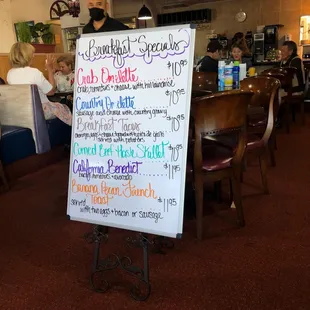 Breakfast Specials
Crab Omlette $10.95
crab, tomatoes + cheese
Country Omlette $10.95
sausage and cheese with country gravy
Breakfast Tacos $10.95
served with potatoes
Corned Beef Hash Skillet $10.95
California Benedict $11.95
bacon, tomatoes + avocado
Banana Pecan French
Toast $11.95
served with two eggs + bacon or sausage